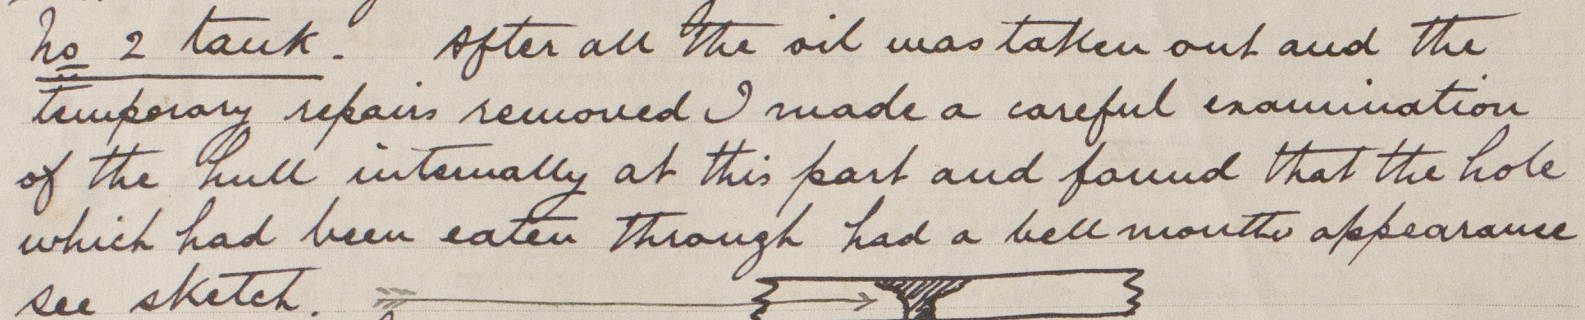 No 2 tank. After all the oil was taken out and the
temporary repairs removed I made a careful examination
of the hull internally at this part and found that the hole
which had been eaten through had a bell mouth appearance
see sketch.